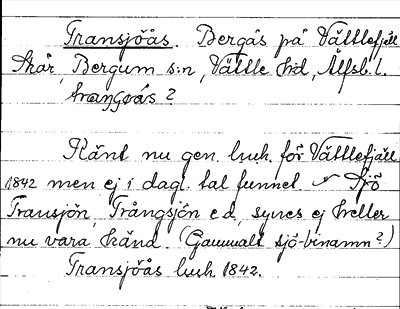 Transjöås. Bergås på Vättlefjäll
Skår, Bergum s:n, Vättle hd, Älfsb. l.
trångsås?
Känt nu gen. lsuk. för Vättlefjäll
1842 men ej i dagl. tal funnet. Sjö
Transjön, Trångsjön e.d., synes ej heller
nu vara känd. (Gammalt sjö-binamn?)
Transjöås lsuk. 1842.